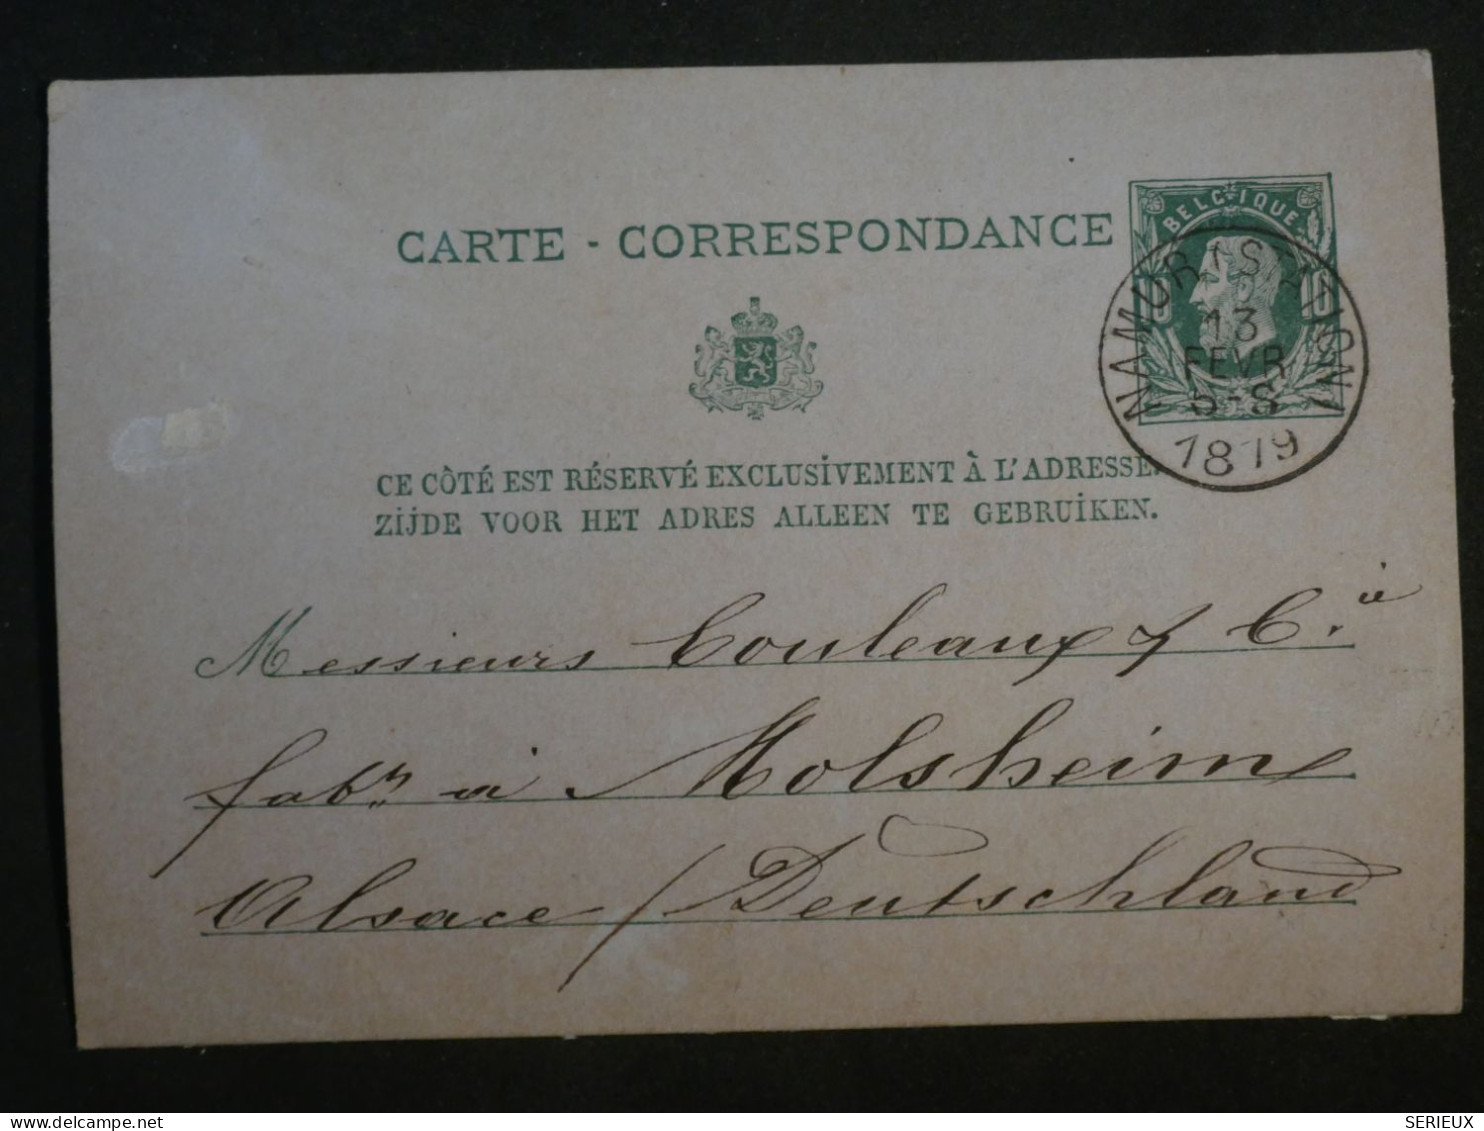 BELGIQUE
CARTE - CORRESPONDANCE
NAMUR (STATION)
13
FEVR
5-S
1879
CE CÔTÉ EST RÉSERVÉ EXCLUSIVEMENT À L'ADRESSE.
ZIJDE VOOR HET ADRES ALLEEN TE GEBRUIKEN.
Messieurs Couleaux & C.ie
fabr. à Molsheim
Alsace / Deutschland
delcampe.net
SERIEUX